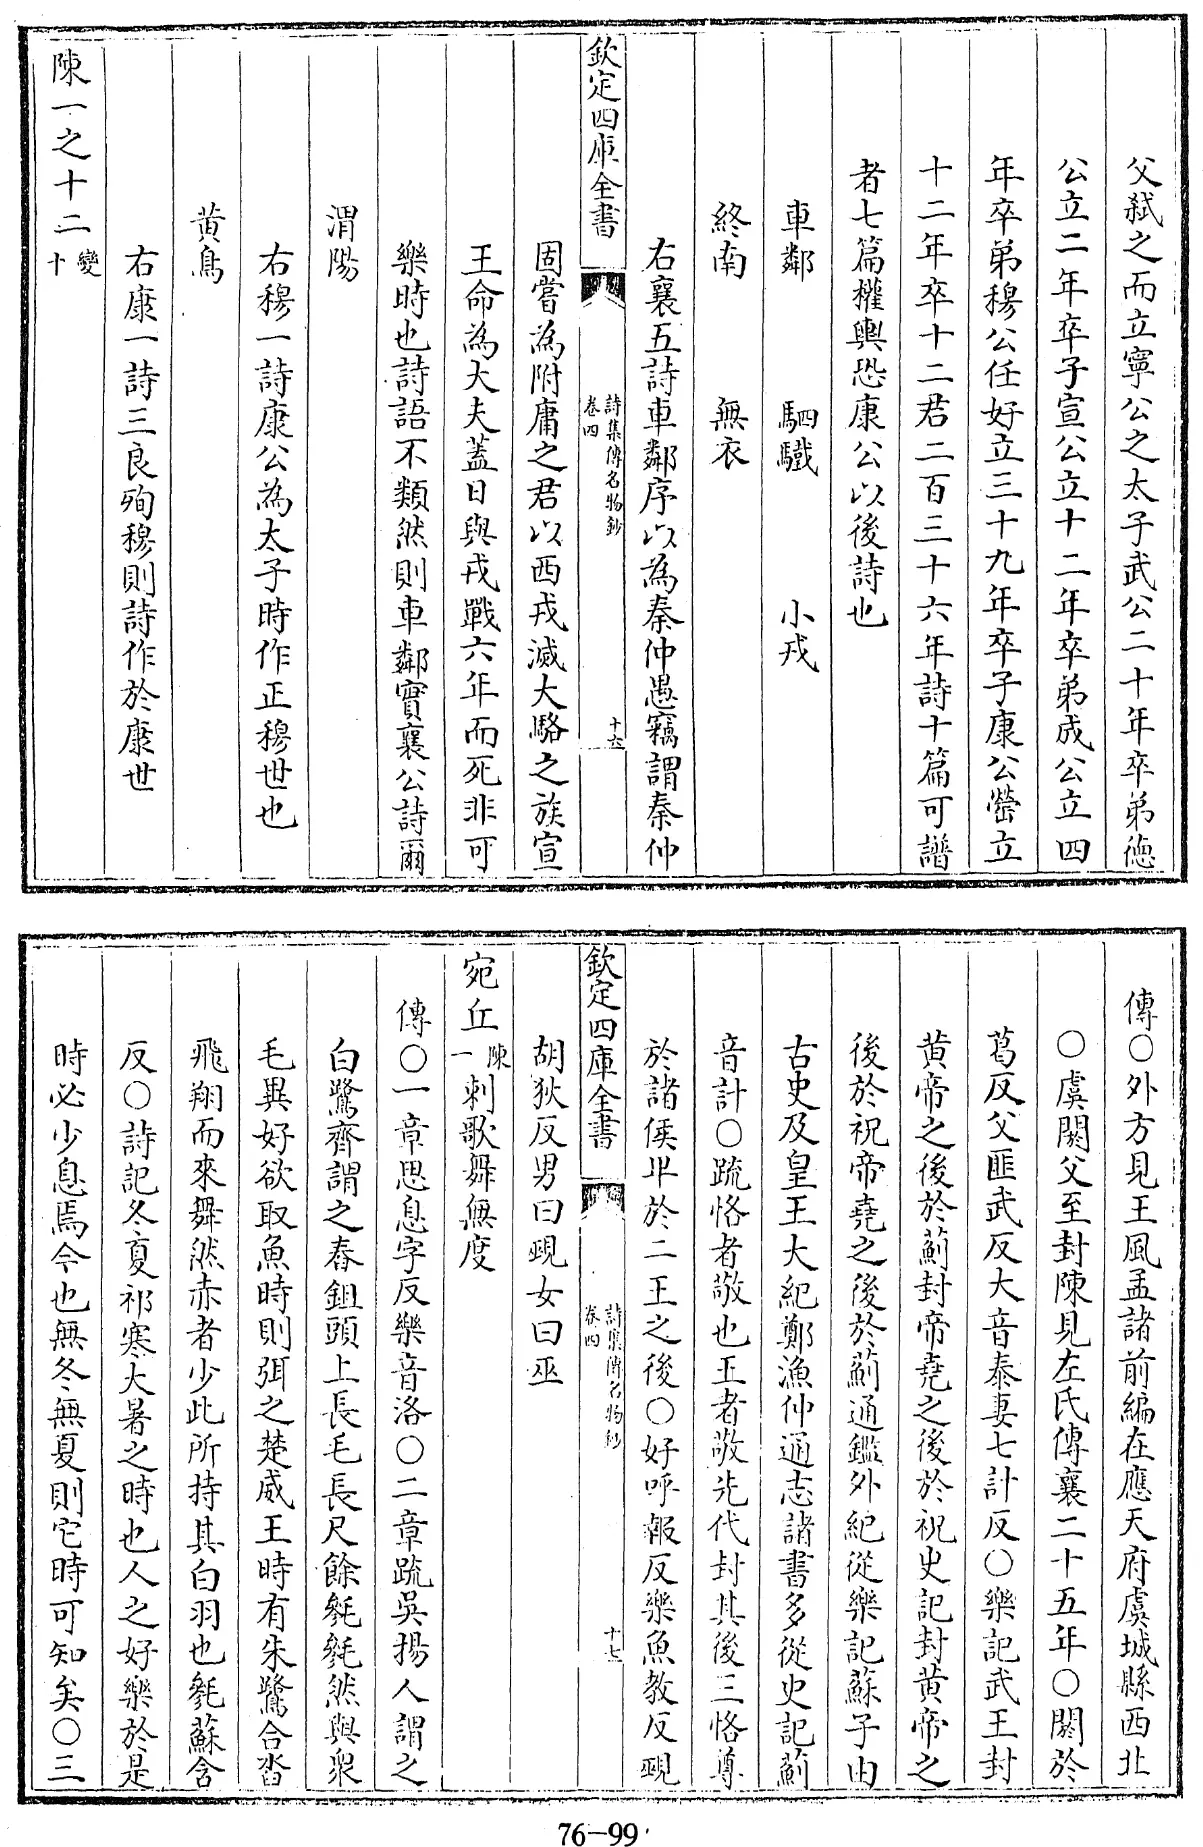 父弑之而立寧公之太子武公二十年卒弟德
公立二年卒子宣公立十二年卒弟成公立四
年卒弟穆公任好立三十九年卒子康公罃立
十二年卒十二君二百三十六年詩十篇可譜
者七篇權輿恐康公以後詩也
車鄰 駟驖 小戎
終南 無衣
右襄五詩車鄰序以為秦仲愚竊謂秦仲
欽定四庫全書
詩集傳名物鈔
卷四
十六
固嘗為附庸之君以西戎滅大駱之族宣
王命為大夫蓋日與戎戰六年而死非可
樂時也詩語不類然則車鄰實襄公詩爾
渭陽
右穆一詩康公為太子時作正穆世也
黃鳥
右康一詩三良殉穆則詩作於康世
陳一之十二變十
傳○外方見王風孟諸前編在應天府虞城縣西北
○虞閼父至封陳見左氏傳襄二十五年○閼於
葛反父匪武反大音泰妻七計反○樂記武王封
黃帝之後於薊封帝堯之後於祝史記封黃帝之
後於祝帝堯之後於薊通鑑外紀從樂記蘇子由
古史及皇王大紀鄭漁仲通志諸書多從史記薊
音計○疏恪者敬也王者敬先代封其後三恪尊
於諸侯卑於二王之後○好呼報反樂魚教反覡
欽定四庫全書
詩集傳名物鈔
卷四
十七
胡狄反男曰覡女曰巫
宛丘陳一刺歌舞無度
傳○一章思息字反樂音洛○二章疏吳揚人謂之
白鷺齊謂之舂鉏頭上長毛長尺餘毿毿然與衆
毛異好欲取魚時則弭之楚威王時有朱鷺合沓
飛翔而來舞然赤者少此所持其白羽也毿蘇含
反○詩記冬夏祁寒大暑之時也人之好樂於是
時必少息焉今也無冬無夏則它時可知矣○三
76-99